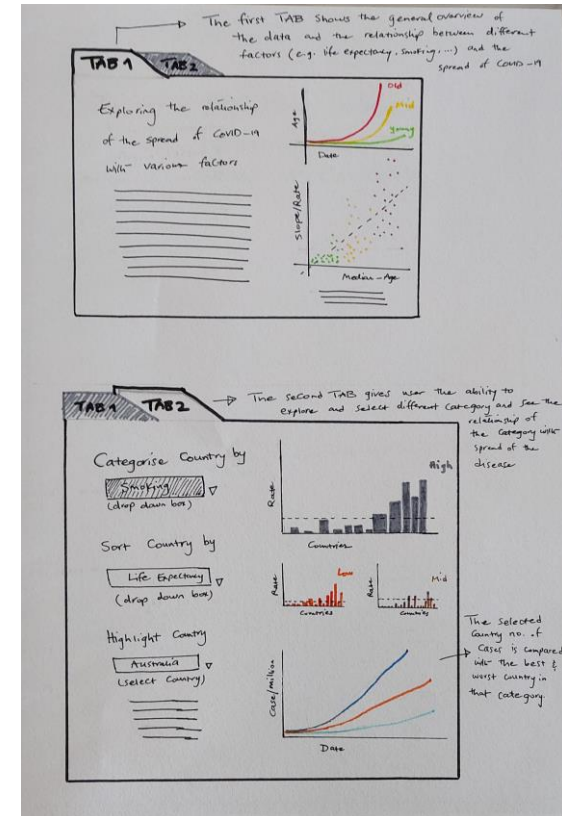 The first TAB shows the general overview of
the data and the relationship between different
factors (e.g. life expectancy, smoking, ...) and the
spread of COVID-19
TAB 1
TAB 2
Exploring the relationship
of the spread of COVID-19
with various factors
Age
Old
Mid
Young
Date
Slope/Rate
Median-Age
TAB 1
TAB 2
The second TAB gives user the ability to
explore and select different category and see the
relationship of
the category with
spread of the
disease
Categorise Country by
Smoking
(drop down box)
Sort Country by
Life Expectancy
(drop down box)
Highlight Country
Australia
(select Country)
High
Rate
Countries
Low
Rate
Countries
Mid
Rate
Countries
Case/Million
Date
The selected
Country no. of
Cases is compared
with the best &
worst country in
that category.